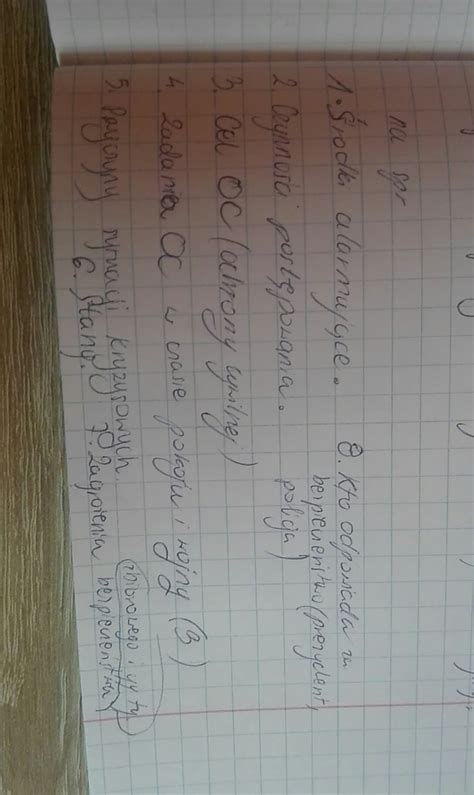 na spr
1. Środki alarmujące.
2 Czynności postępowania.
3. Cel OC (ochrony cywilnej)
4. Zadania OC w czasie pokoju i wojny (3)
5. Przyczyny sytuacji kryzysowych.
6. Stany.
7. Zagrożenia bezpieczeństwa
zbiorowego i
8. Kto odpowiada za
bezpieczeństwo (prezydent,
policja)